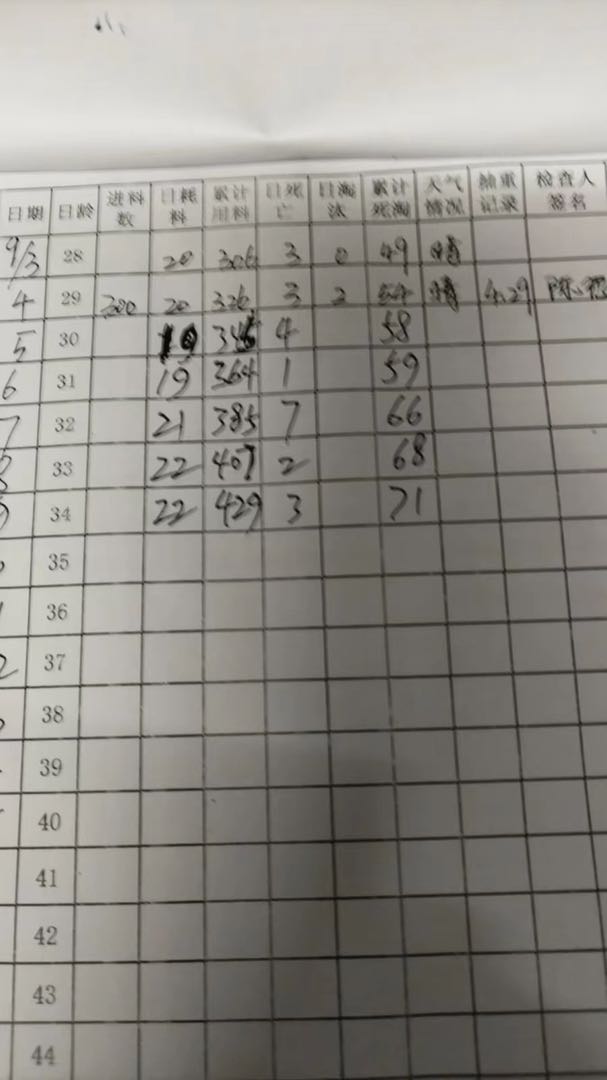 日期 日龄 进料数 日耗料 累计用料 日死亡 日淘汰 累计死淘 天气情况 抽重记录 检查人签名
9/3 28 20 306 3 0 49 晴
4 29 300 20 326 3 2 54 晴 4.29
5 30 19 345 4 58
6 31 19 364 1 59
7 32 21 385 7 66
33 22 407 2 68
34 22 429 3 71
35
36
37
38
39
40
41
42
43
44